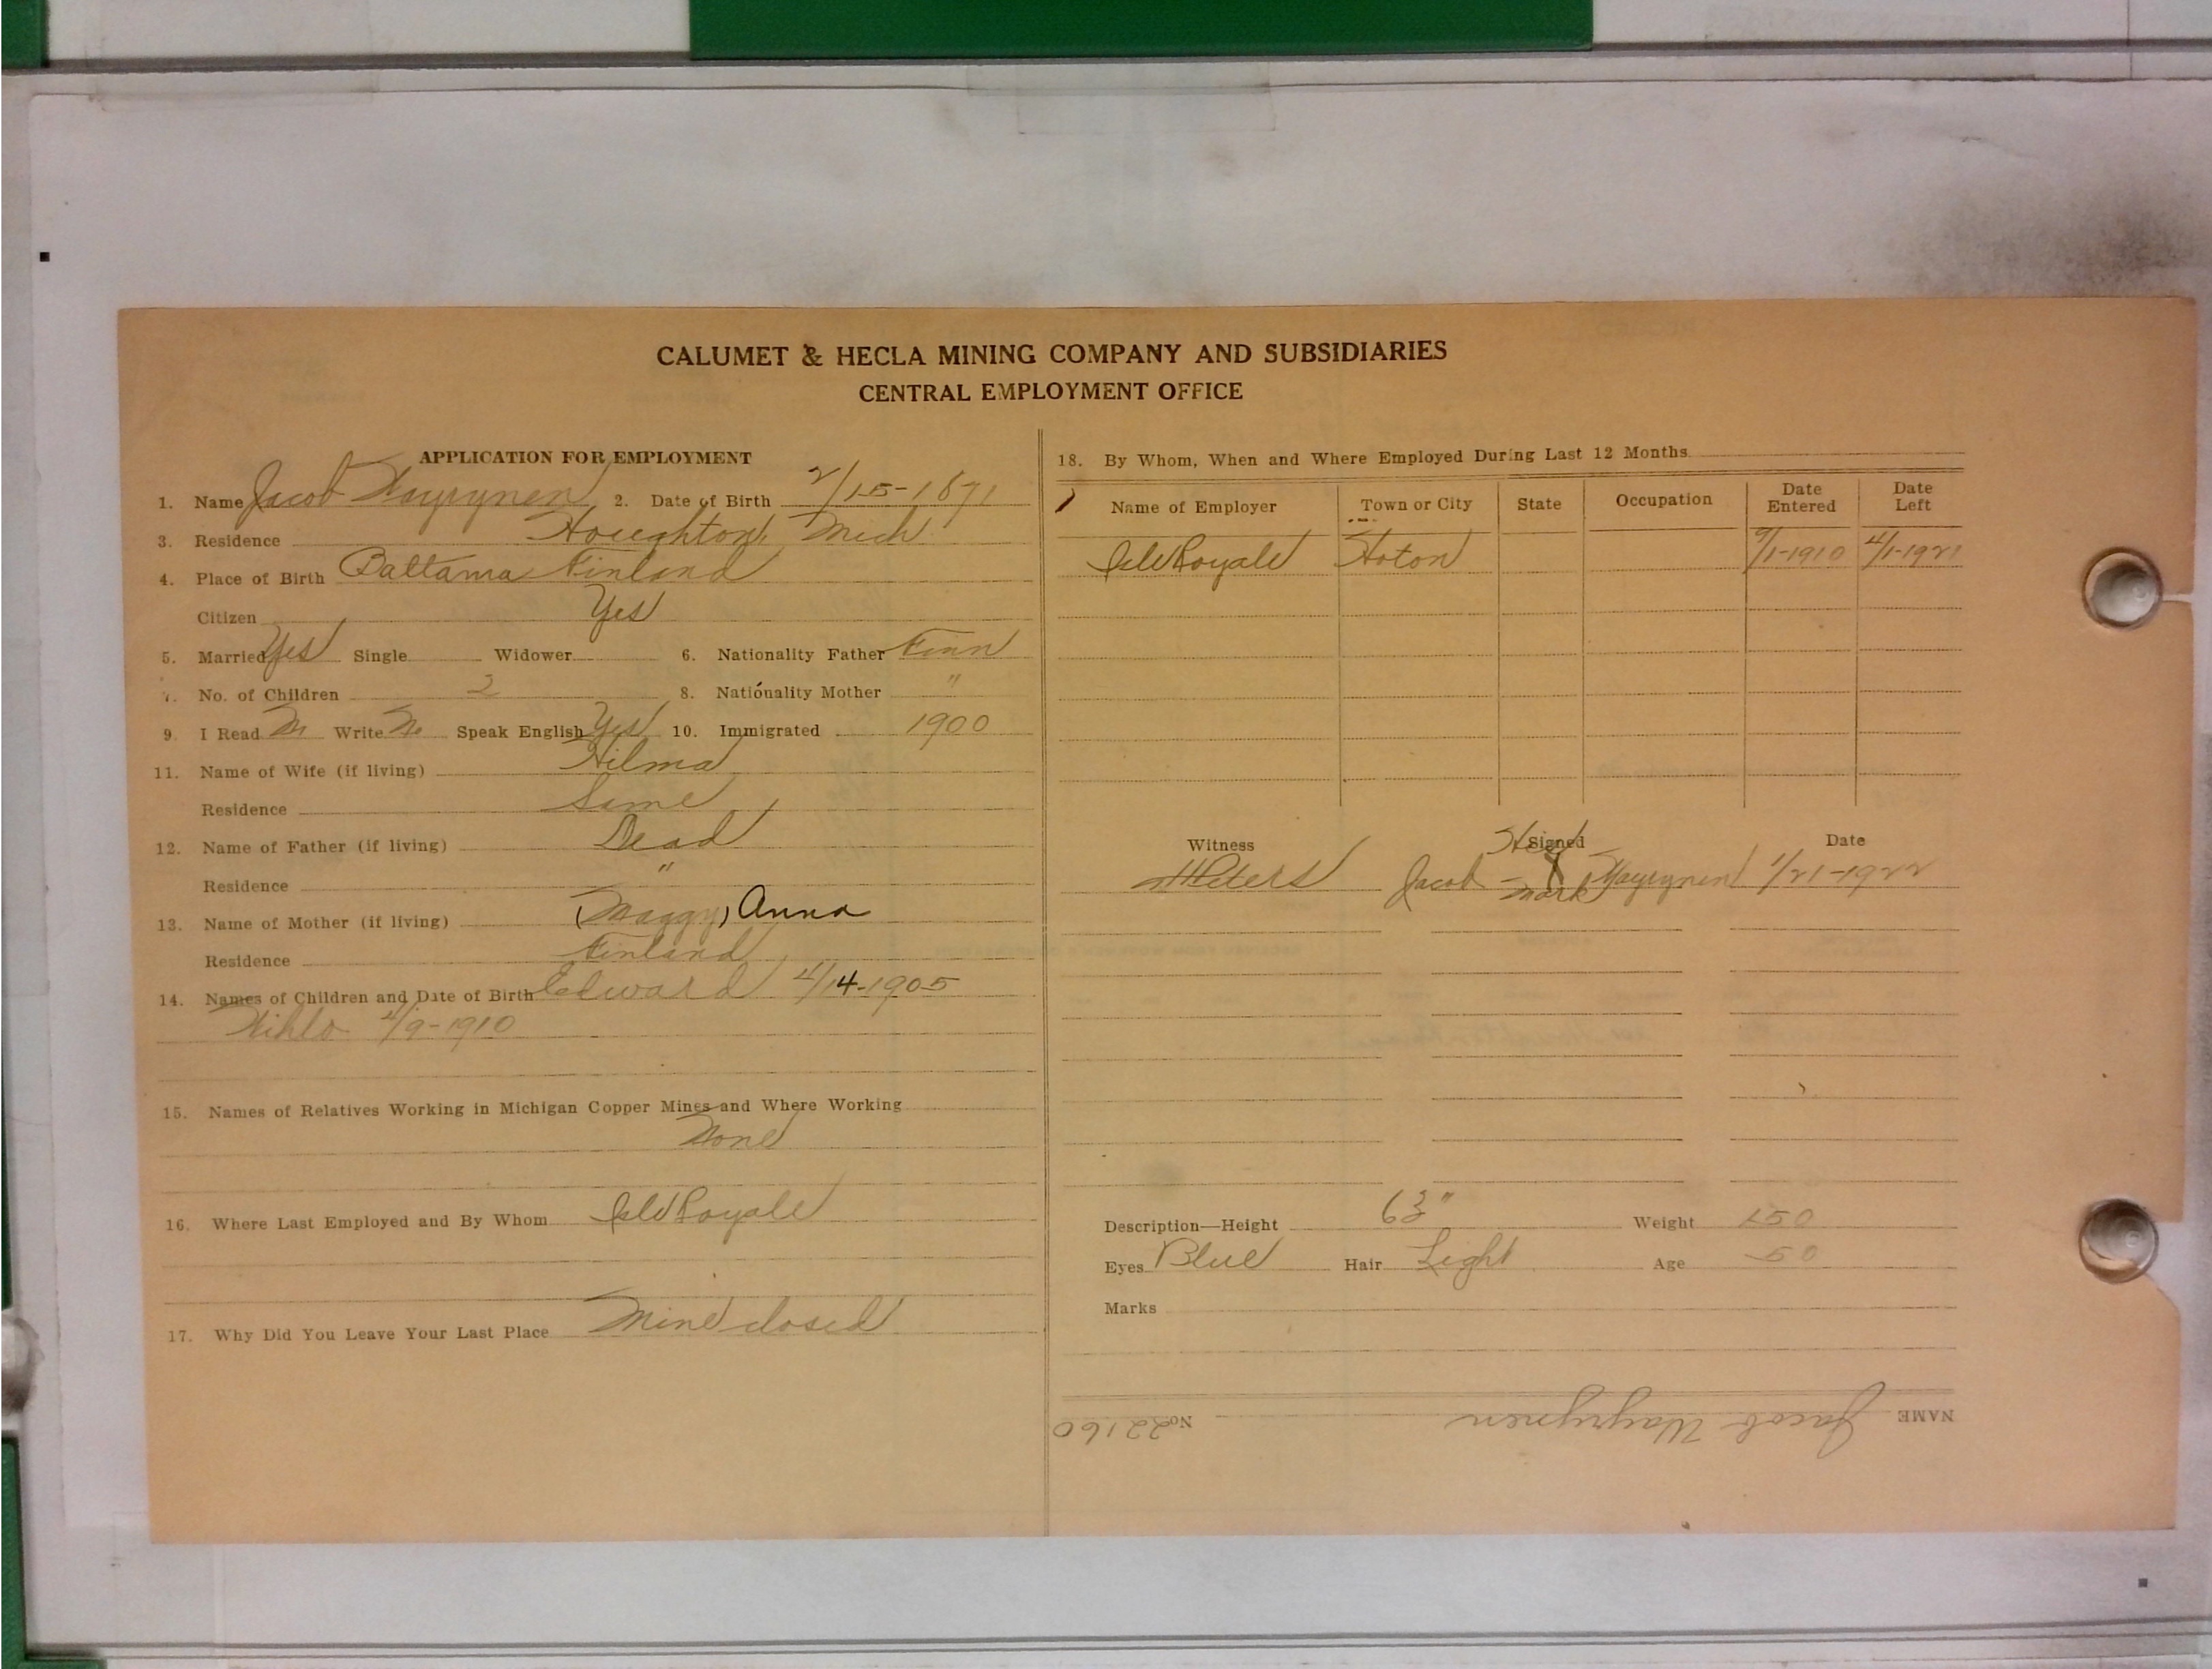 CALUMET & HECLA MINING COMPANY AND SUBSIDIARIES
CENTRAL EMPLOYMENT OFFICE
APPLICATION FOR EMPLOYMENT
1. Name Jacob Wayrynen 2. Date of Birth 2/15-1871
3. Residence Houghton, Mich
4. Place of Birth Paltama Finland
Citizen Yes
5. Married Yes Single Widower 6. Nationality Father Finn
7. No. of Children 2 8. Nationality Mother "
9. I Read No Write No Speak English Yes 10. Immigrated 1900
11. Name of Wife (if living) Hilma
Residence Same
12. Name of Father (if living) Dead
Residence "
13. Name of Mother (if living) (Maggy) Anna
Residence Finland
14. Names of Children and Date of Birth Edward 4/14-1905
4/9-1910
15. Names of Relatives Working in Michigan Copper Mines and Where Working
None
16. Where Last Employed and By Whom Isle Royale
17. Why Did You Leave Your Last Place Mine closed
18. By Whom, When and Where Employed During Last 12 Months
Name of Employer Town or City State Occupation Date Entered Date Left
Isle Royale Hoton 9/1-1910 4/1-1921
Witness Signed Date
His
Peters Jacob - X Wayrynen 1/21-1922
mark
Description—Height 63" Weight 150
Eyes Blue Hair Light Age 50
Marks
NAME Jacob Wayrynen No. 22160